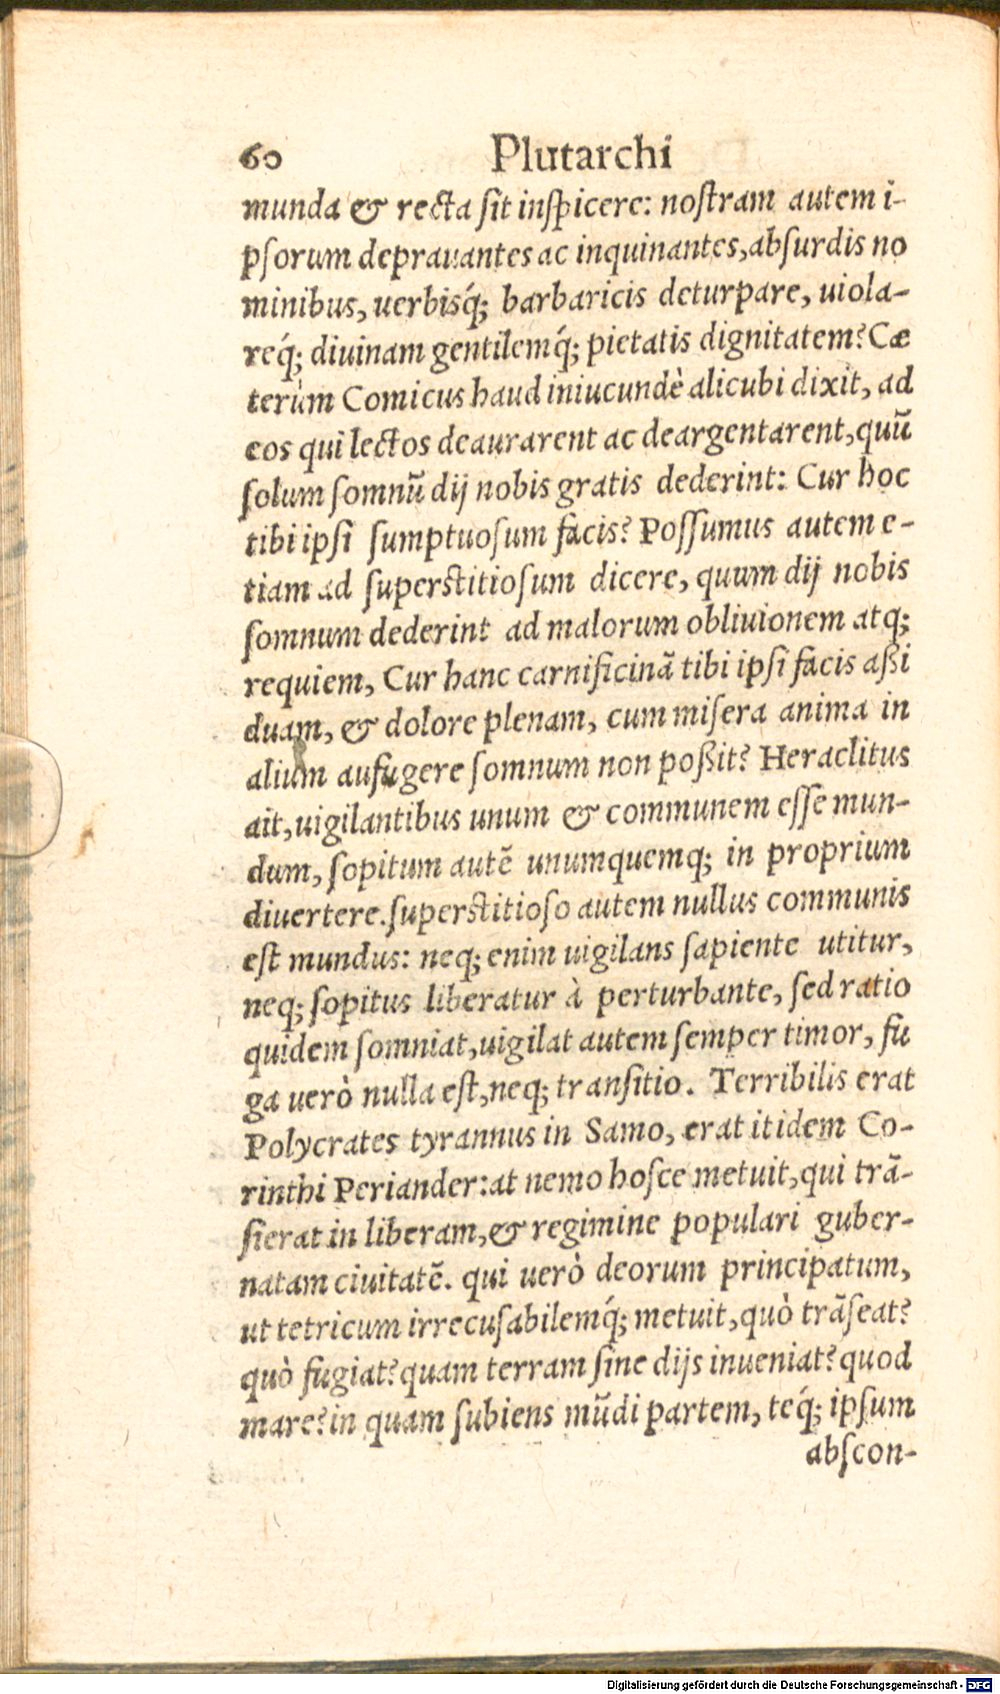 60 Plutarchi
munda & recta sit inspicere: nostram autem i-
psorum deprauantes ac inquinantes, absurdis no
minibus, uerbisq́; barbaricis deturpare, uiola-
req́; diuinam gentilemq́; pietatis dignitatem? Cæ
terùm Comicus haud iniucundè alicubi dixit, ad
eos qui lectos deaurarent ac deargentarent, quũ
solum somnũ dij nobis gratis dederint: Cur hoc
tibi ipsi sumptuosum facis? Possumus autem e-
tiam ad superstitiosum dicere, quum dij nobis
somnum dederint ad malorum obliuionem atq;
requiem, Cur hanc carnificinã tibi ipsi facis aßi
duam, & dolore plenam, cum misera anima in
alium aufugere somnum non poßit? Heraclitus
ait, uigilantibus unum & communem esse mun-
dum, sopitum autẽ unumquemq; in proprium
diuertere. superstitioso autem nullus communis
est mundus: neq; enim uigilans sapiente utitur,
neq; sopitus liberatur à perturbante, sed ratio
quidem somniat, uigilat autem semper timor, fu
ga uerò nulla est, neq; transitio. Terribilis erat
Polycrates tyrannus in Samo, erat itidem Co-
rinthi Periander: at nemo hosce metuit, qui trã-
sierat in liberam, & regimine populari guber-
natam ciuitatẽ. qui uerò deorum principatum,
ut tetricum irrecusabilemq́; metuit, quò trãseat?
quò fugiat? quam terram sine dijs inueniat? quod
mare? in quam subiens mũdi partem, teq́; ipsum
abscon-
Digitalisierung gefördert durch die Deutsche Forschungsgemeinschaft - DFG